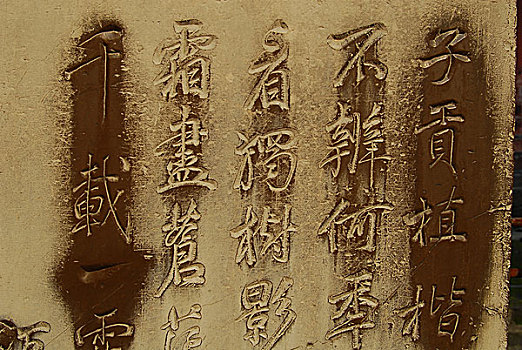 子貢植楷
不辨何年
看獨樹影
霜盡蒼茫
千載一霑